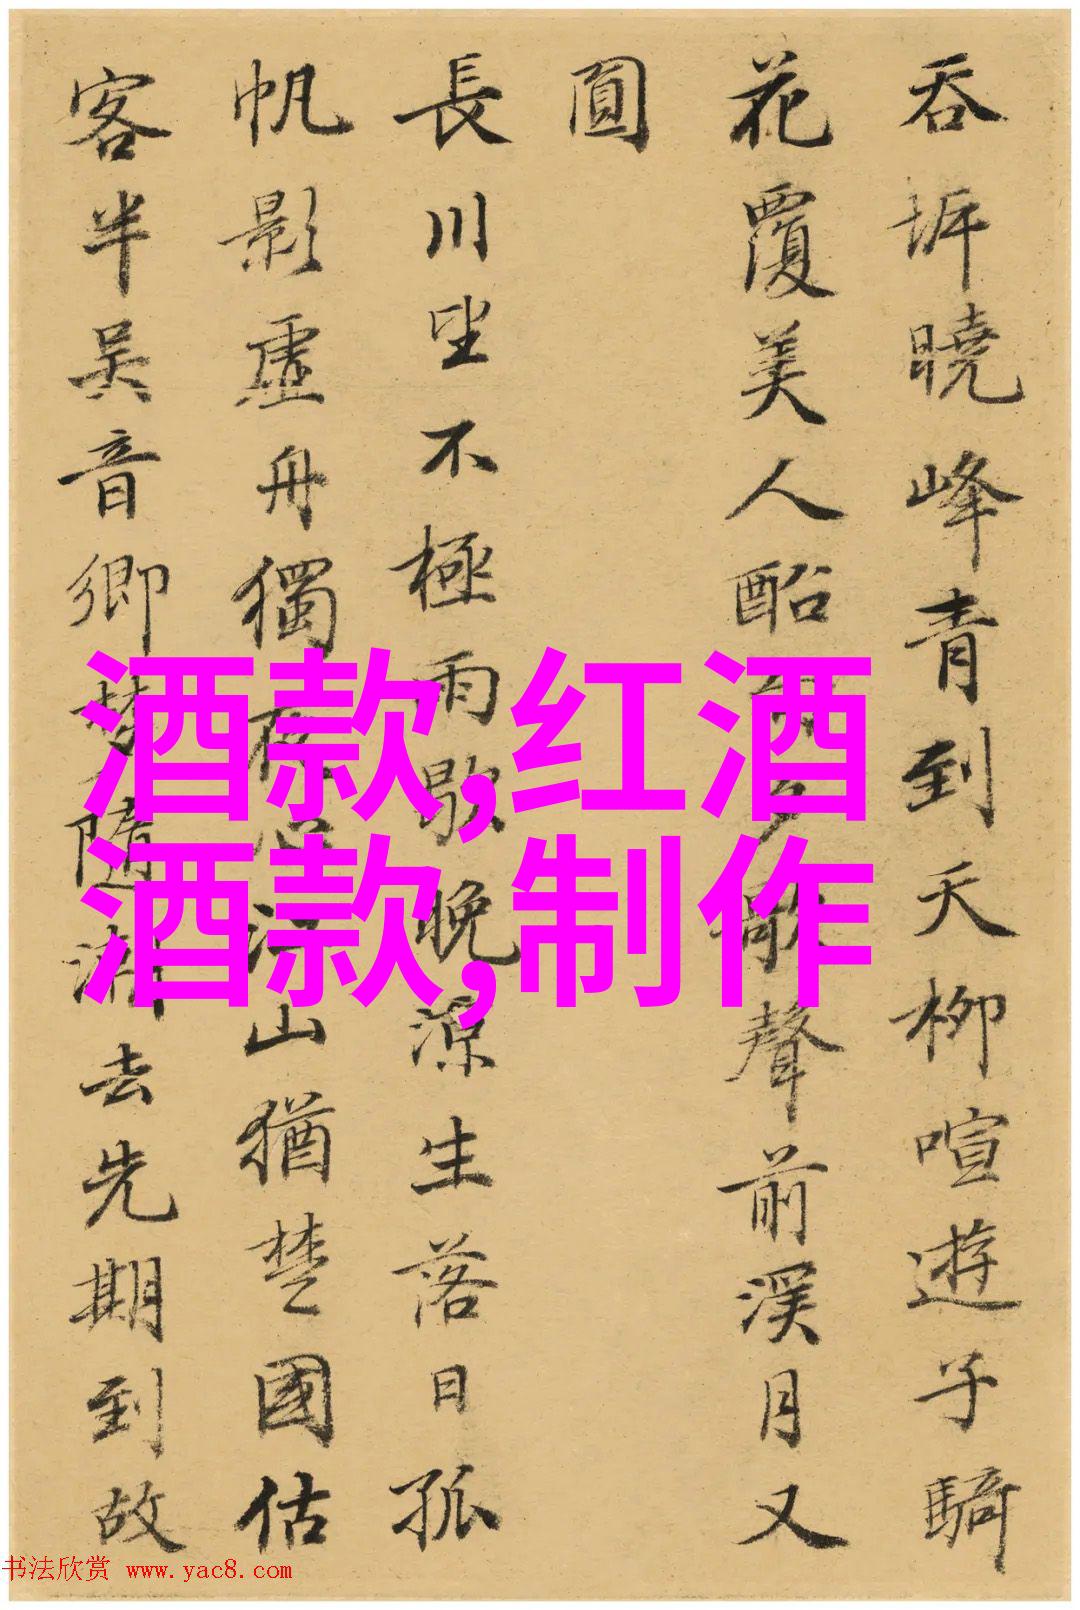 吞坼曉峰青到天柳喧遊子騎
花覆美人酩歌聲前溪月又
圓
長川坐不極雨歇晚涼生落日孤
帆影虛舟獨夜心江山猶楚國估
客半吳音鄉夢隨潮去先期到故
酒款,红酒
酒款,制作
书法欣赏 www.yac8.com